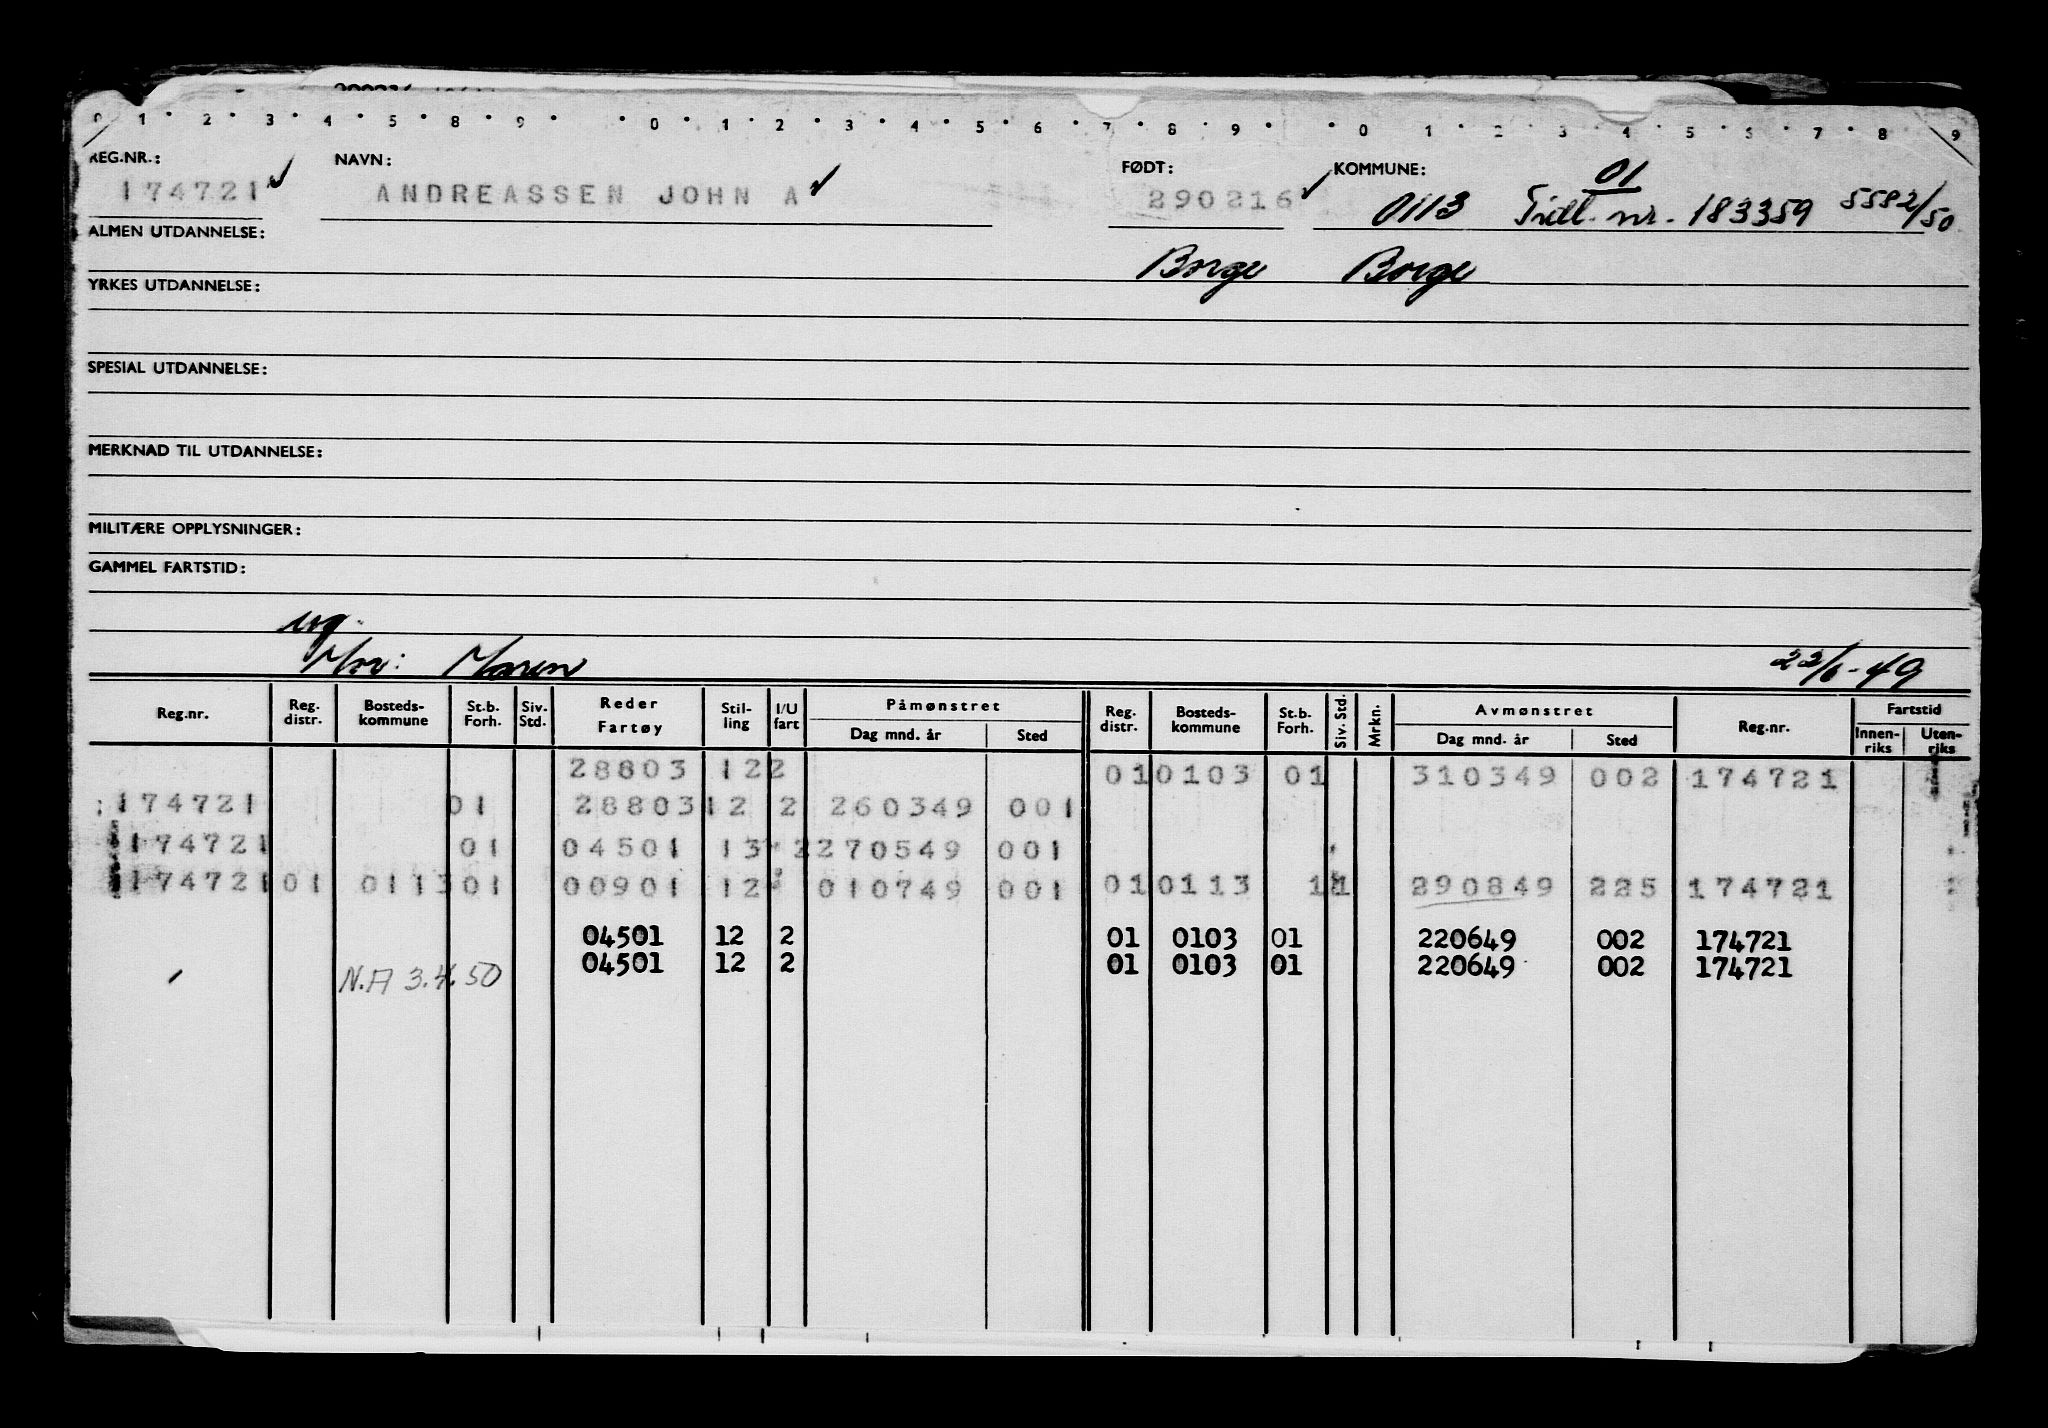 0 1 2 3 4 5 8 9 0 1 2 3 4 5 6 7 8 9 0 1 2 3 4 5 6 7 8 9
REG.NR.: NAVN: FØDT: KOMMUNE: 01
174721 ANDREASSEN JOHN A 290216 0113 Tidl. nr. 183359 5582/50
ALMEN UTDANNELSE:
Borge Borge
YRKES UTDANNELSE:
SPESIAL UTDANNELSE:
MERKNAD TIL UTDANNELSE:
MILITÆRE OPPLYSNINGER:
GAMMEL FARTSTID:
ug.
Mor: Maren 22/6-49
Reg.nr. Reg. distr. Bosteds-kommune St.b. Forh. Siv. Std. Reder Fartøy Stil-ling I/U fart Påmønstret Dag mnd. år Sted Reg. distr. Bosteds-kommune St.b. Forh. Siv. Std. Mrkn. Avmønstret Dag mnd. år Sted Reg.nr. Fartstid Innen-riks Uten-riks
28803 122 01 0103 01 310349 002 174721
174721 01 28803 12 2 260349 001
174721 01 04501 13 2 270549 001
174721 01 0113 01 00901 12 010749 001 01 0113 11 290849 225 174721
04501 12 2 01 0103 01 220649 002 174721
04501 12 2 01 0103 01 220649 002 174721
N.A 3.4.50